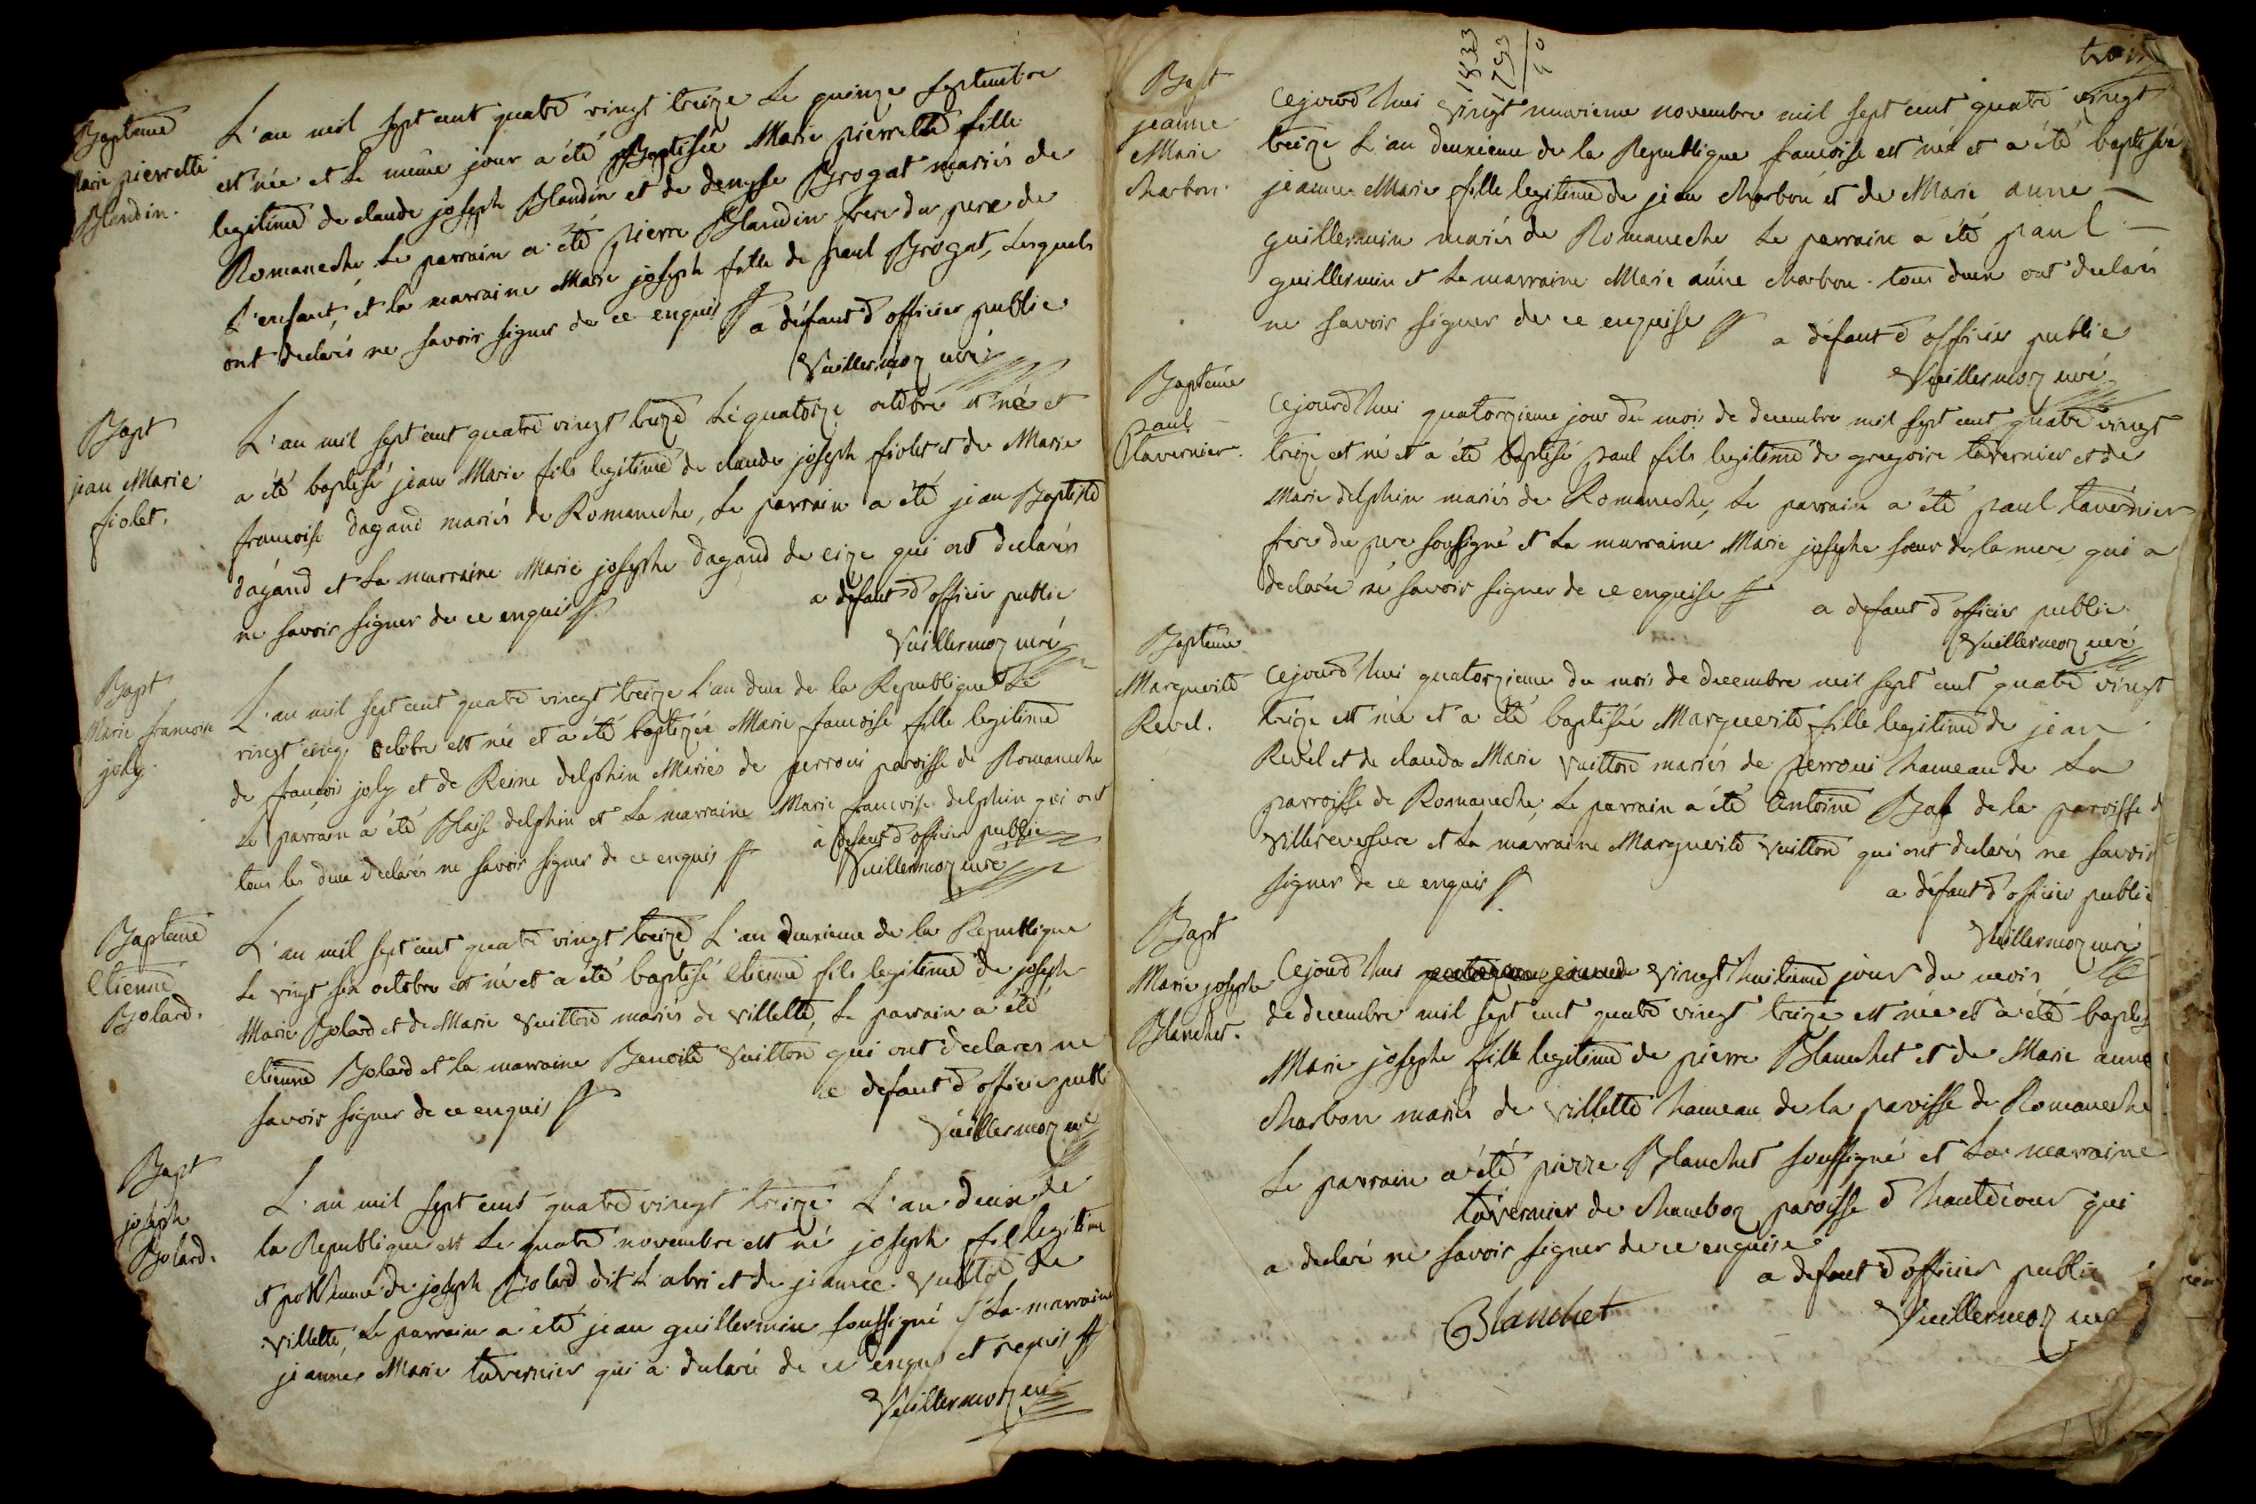 Bapteme
Marie pierrette
Blandin.
L'an mil sept cent quatre vingt treize Le quinze septembre
est née et Le même jour a été Baptisée Marie pierrette fille
legitime de claude joseph Blandin et de denyse Brogat mariés de
Romaneche, Le parrain a été pierre Blandin frere du pere de
L'enfant, et la marraine Marie joseph fille de paul Brogat, Lesquels
ont declarés ne savoir signer de ce enquis
a défaut d'officier public
Vuillermoz curé
Bapt
jean Marie
fiolet.
L'an mil sept cent quatre vingt treize Le quatorze octobre est né et
a été baptisé jean Marie fils legitime de claude joseph fiolet et de Marie
francoise dagand mariés de Romaneche, Le parrain a été jean Baptiste
dagand et La marraine Marie josephe dagand de cize qui ont declarés
ne savoir signer de ce enquis
a défaut d'officier public
Vuillermoz curé
Bapt
Marie francoise
joly.
L'an mil sept cent quatre vingt treize L'an deux de la Republique Le
vingt cinq octobre est née et a été baptizée Marie francoise fille legitime
de francois joly et de Reine delphin Mariés de perroui paroisse de Romaneche
Le parrain a été Blaise delphin et La marraine Marie francoise delphin qui ont
tous les deux declarés ne savoir signer de ce enquis
a défaut d'officier public
Vuillermoz curé
Bapteme
Etienne
Bolard.
L'an mil sept cent quatre vingt treize L'an deuxieme de la Republique
Le vingt six octobre est né et a été baptisé Etienne fils legitime de joseph
Marie Bolard et de Marie Vuitton mariés de villette, Le parrain a été
etienne Bolard et la marraine Benoite Vuitton qui ont declarés ne
savoir signer de ce enquis
a défaut d'officier publi
Vuillermoz curé
Bapt
joseph
Bolard.
L'an mil sept cent quatre vingt treize L'an deux de
la Republique et Le quatre novembre est né joseph fil legitime
et posthume de joseph Bolard dit L'abri et de jeanne Vuitton de
villette, Le parrain a été jean guillermin soussigné et La marraine
jeanne Marie tavernier qui a declaré de ce enquis et requis
Vuillermoz curé
1833
1793
40
trois
Bapt
jeanne
Marie
charbon.
Cejourd'hui vingt neuvieme novembre mil sept cent quatre vingt
treize L'an deuxieme de la Republique francoise est née et a été baptisée
jeanne Marie fille legitime de jean charbon et de Marie anne
guillermin mariés de Romaneche Le parrain a été paul
guillermin et La marraine Marie anne charbon. tous deux ont declarés
ne savoir signer de ce enquise
a défaut d'officier public
Vuillermoz curé
Bapteme
paul
tavernier.
Cejourd'hui quatorzieme jour du mois de decembre mil sept cent quatre vingt
treize est né et a été baptisé paul fils legitime de gregoire tavernier et de
Marie delphin mariés de Romaneche, Le parrain a été paul tavernier
frere du pere soussigné et La marraine Marie josephe soeur de la mere qui a
declarée ne savoir signer de ce enquise
a défaut d'officier public
Vuillermoz curé
Bapteme
Marguerite
Revel.
Cejourd'hui quatorzieme du mois de decembre mil sept cent quatre vingt
treize est née et a été baptisée Marguerite fille legitime de jean
Revel et de clauda Marie Vuitton mariés de perroui hameau de La
parroisse de Romaneche, Le parrain a été Antoine de la paroisse d
villereversure et La marraine Marguerite Vuitton qui ont declarés ne savoir
signer de ce enquis
a défaut d'officier public
Vuillermoz curé
Bapt
Marie joseph
Blanchet.
Cejourd'hui vingt huitieme jour du mois
de decembre mil sept cent quatre vingt treize est née et a été baptis
Marie josephe fille legitime de pierre Blanchet et de Marie anne
charbon mariés de villette hameau de la paroisse de Romaneche
Le parrain a été pierre Blanchet soussigné et La marraine
tavernier de chamboz paroisse d'hautecour qui
a declaré ne savoir signer de ce enquise
a défaut d'officier public
Blanchet
Vuillermoz cu